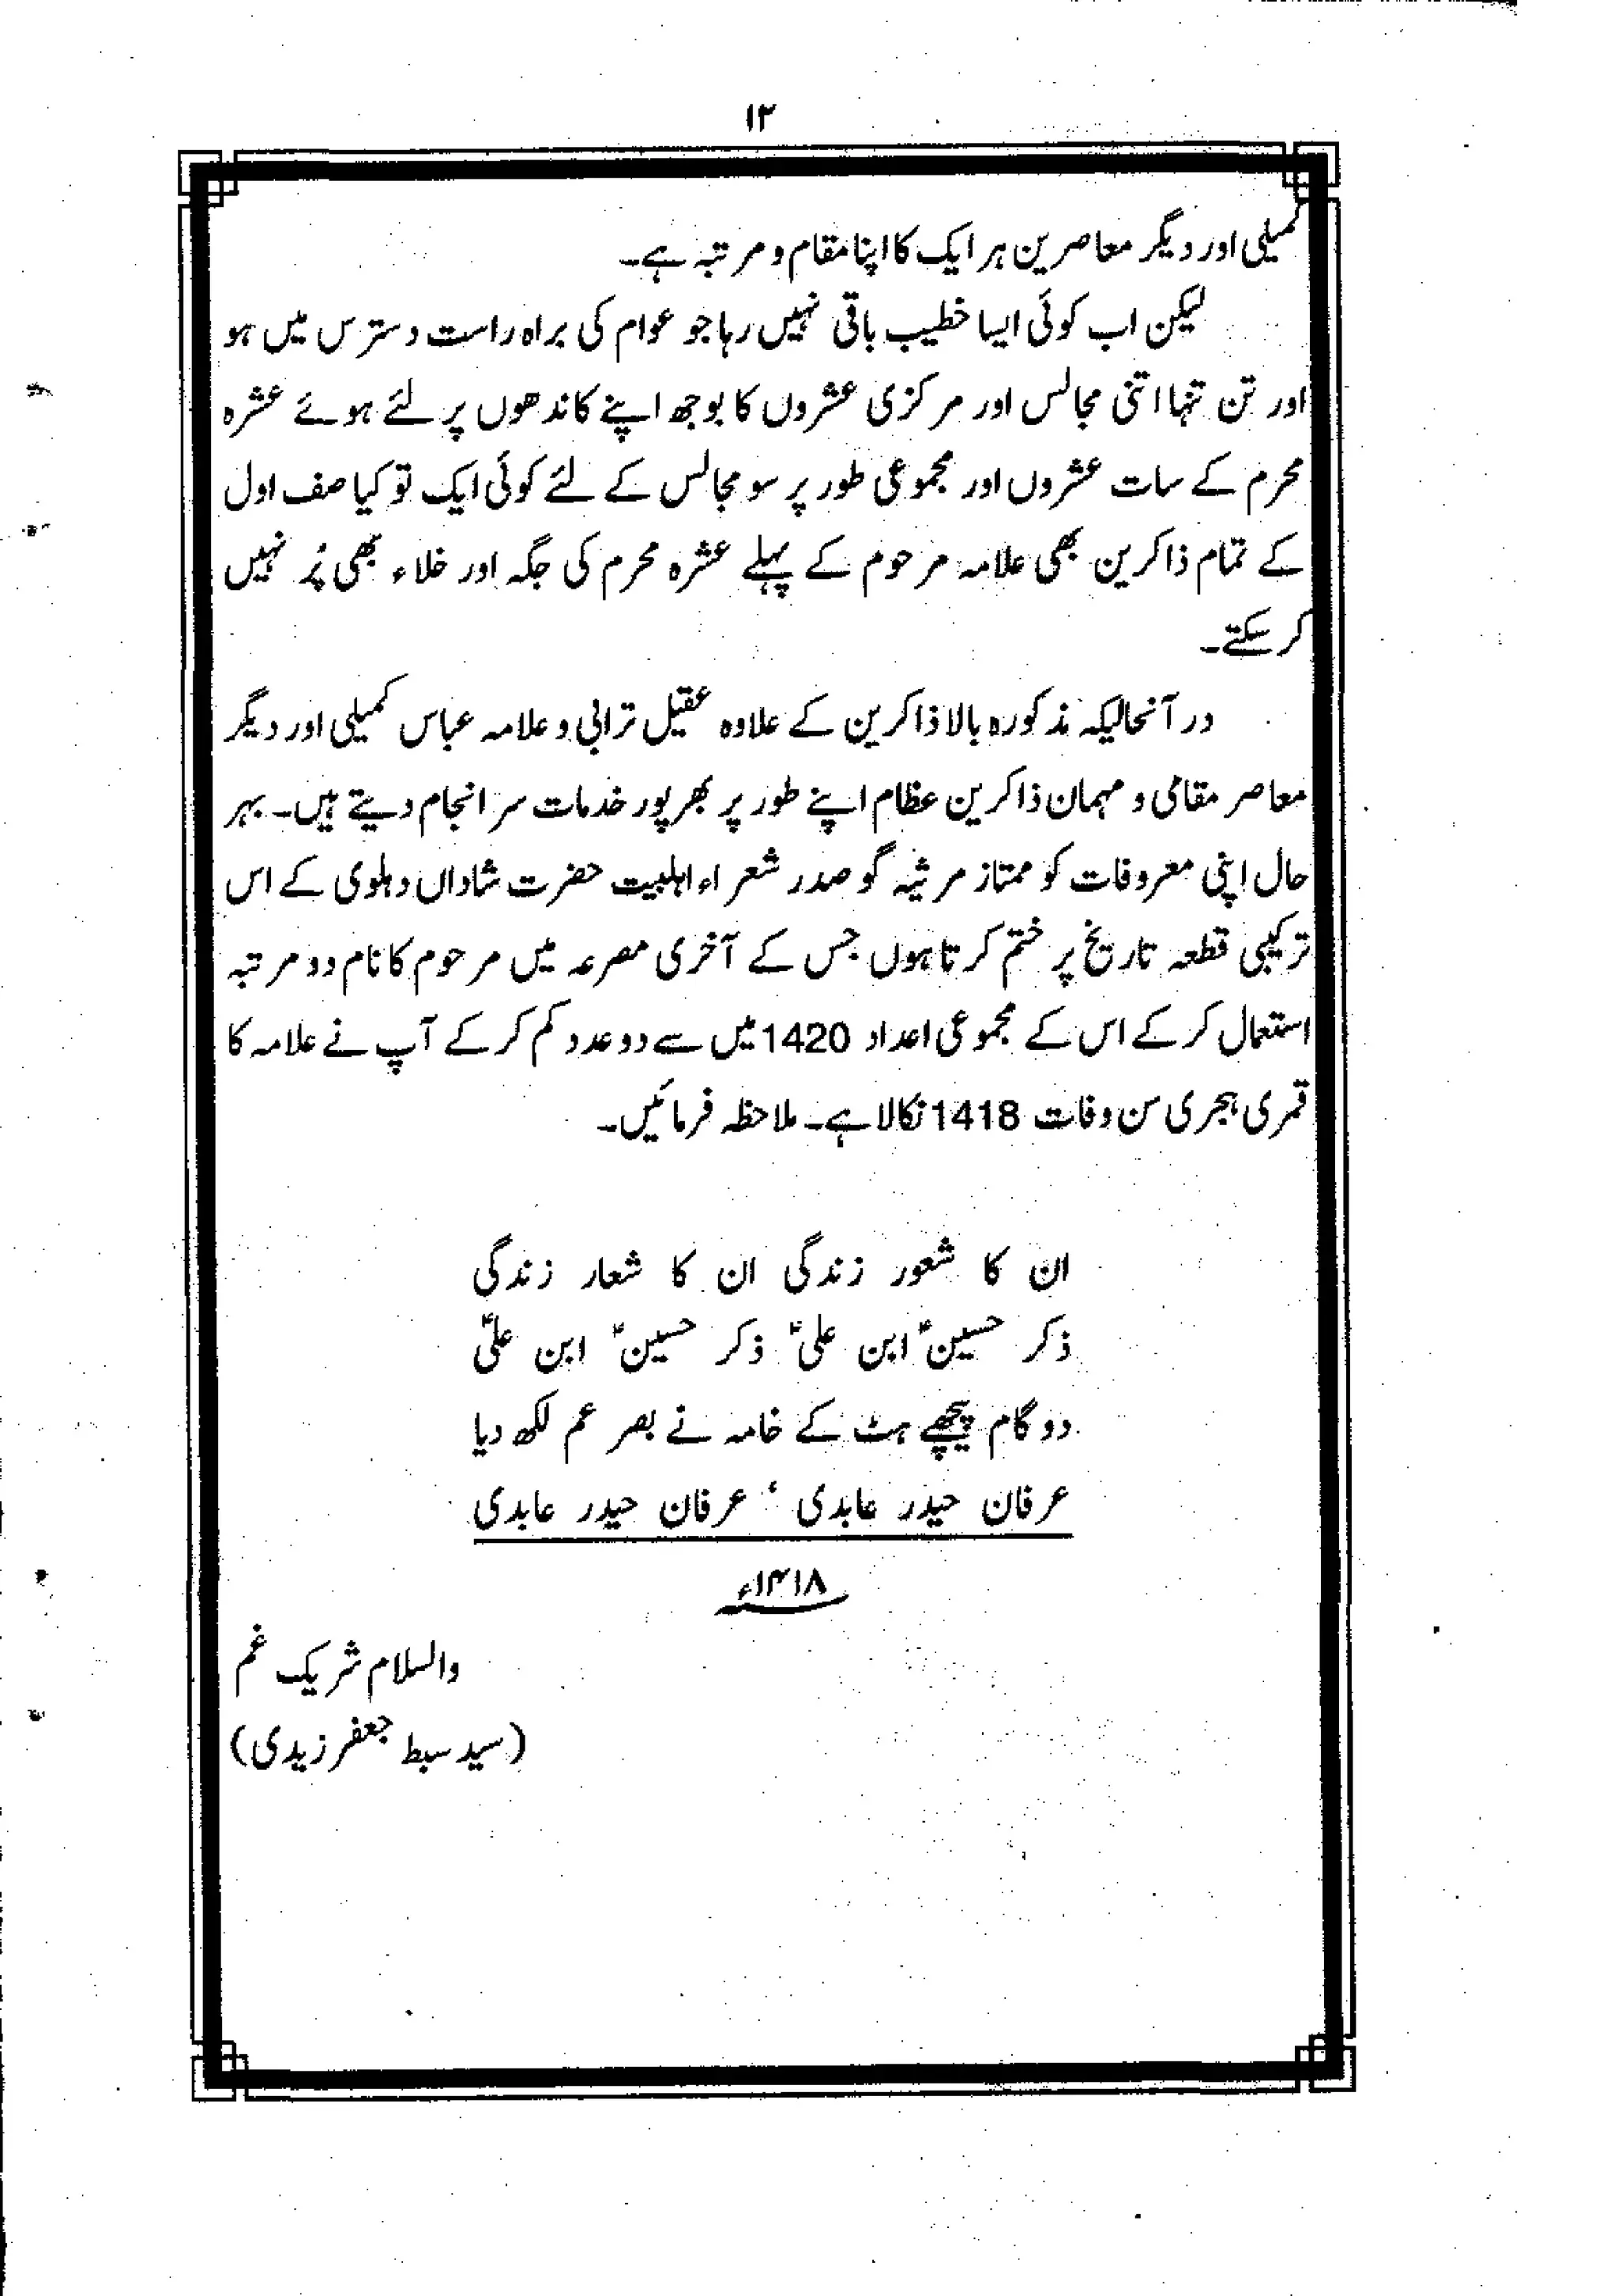 ۱۲
کمیلی اور دیگر معاصرین ہر ایک کا اپنا مقام و مرتبہ ہے۔
لیکن اب کوئی ایسا خطیب باقی نہیں رہا جو عوام کی براہ راست دسترس میں ہو
اور تن تنہا اتنی مجالس اور مرکزی عشروں کا بوجھ اپنے کاندھوں پر لئے ہوئے عشرہ
محرم کے سات عشروں اور مجموعی طور پر سو مجالس کے لئے کوئی ایک تو کیا صف اول
کے تمام ذاکرین بھی علامہ مرحوم کے پہلے عشرہ محرم کی جگہ اور خلاء بھی پُر نہیں
کر سکتے۔
در آنحالیکہ مذکورہ بالا ذاکرین کے علاوہ عقیل ترابی و علامہ عباس کمیلی اور دیگر
معاصر مقامی و مہمان ذاکرین عظام اپنے طور پر بھرپور خدمات سر انجام دیتے ہیں۔ بہر
حال اپنی معروفات کو ممتاز مرثیہ گو صدر شعراء اہلبیت حضرت شاداں دہلوی کے اس
ترکیبی قطعہ تاریخ پر ختم کرتا ہوں جس کے آخری مصرعہ میں مرحوم کا نام دو مرتبہ
استعمال کر کے اس کے مجموعی اعداد 1420 میں سے دو عدد کم کر کے آپ نے علامہ کا
قمری ہجری سن وفات 1418 نکالا ہے۔ ملاحظہ فرمائیں۔
ان کا شعور زندگی ان کا شعار زندگی
ذکر حسینؑ ابن علیؑ ذکر حسینؑ ابن علیؑ
دو گام پیچھے ہٹ کے خامہ نے بصر غم لکھ دیا
عرفان حیدر عابدی ' عرفان حیدر عابدی
۱۴۱۸ء
والسلام شریک غم
(سید سبط جعفر زیدی)